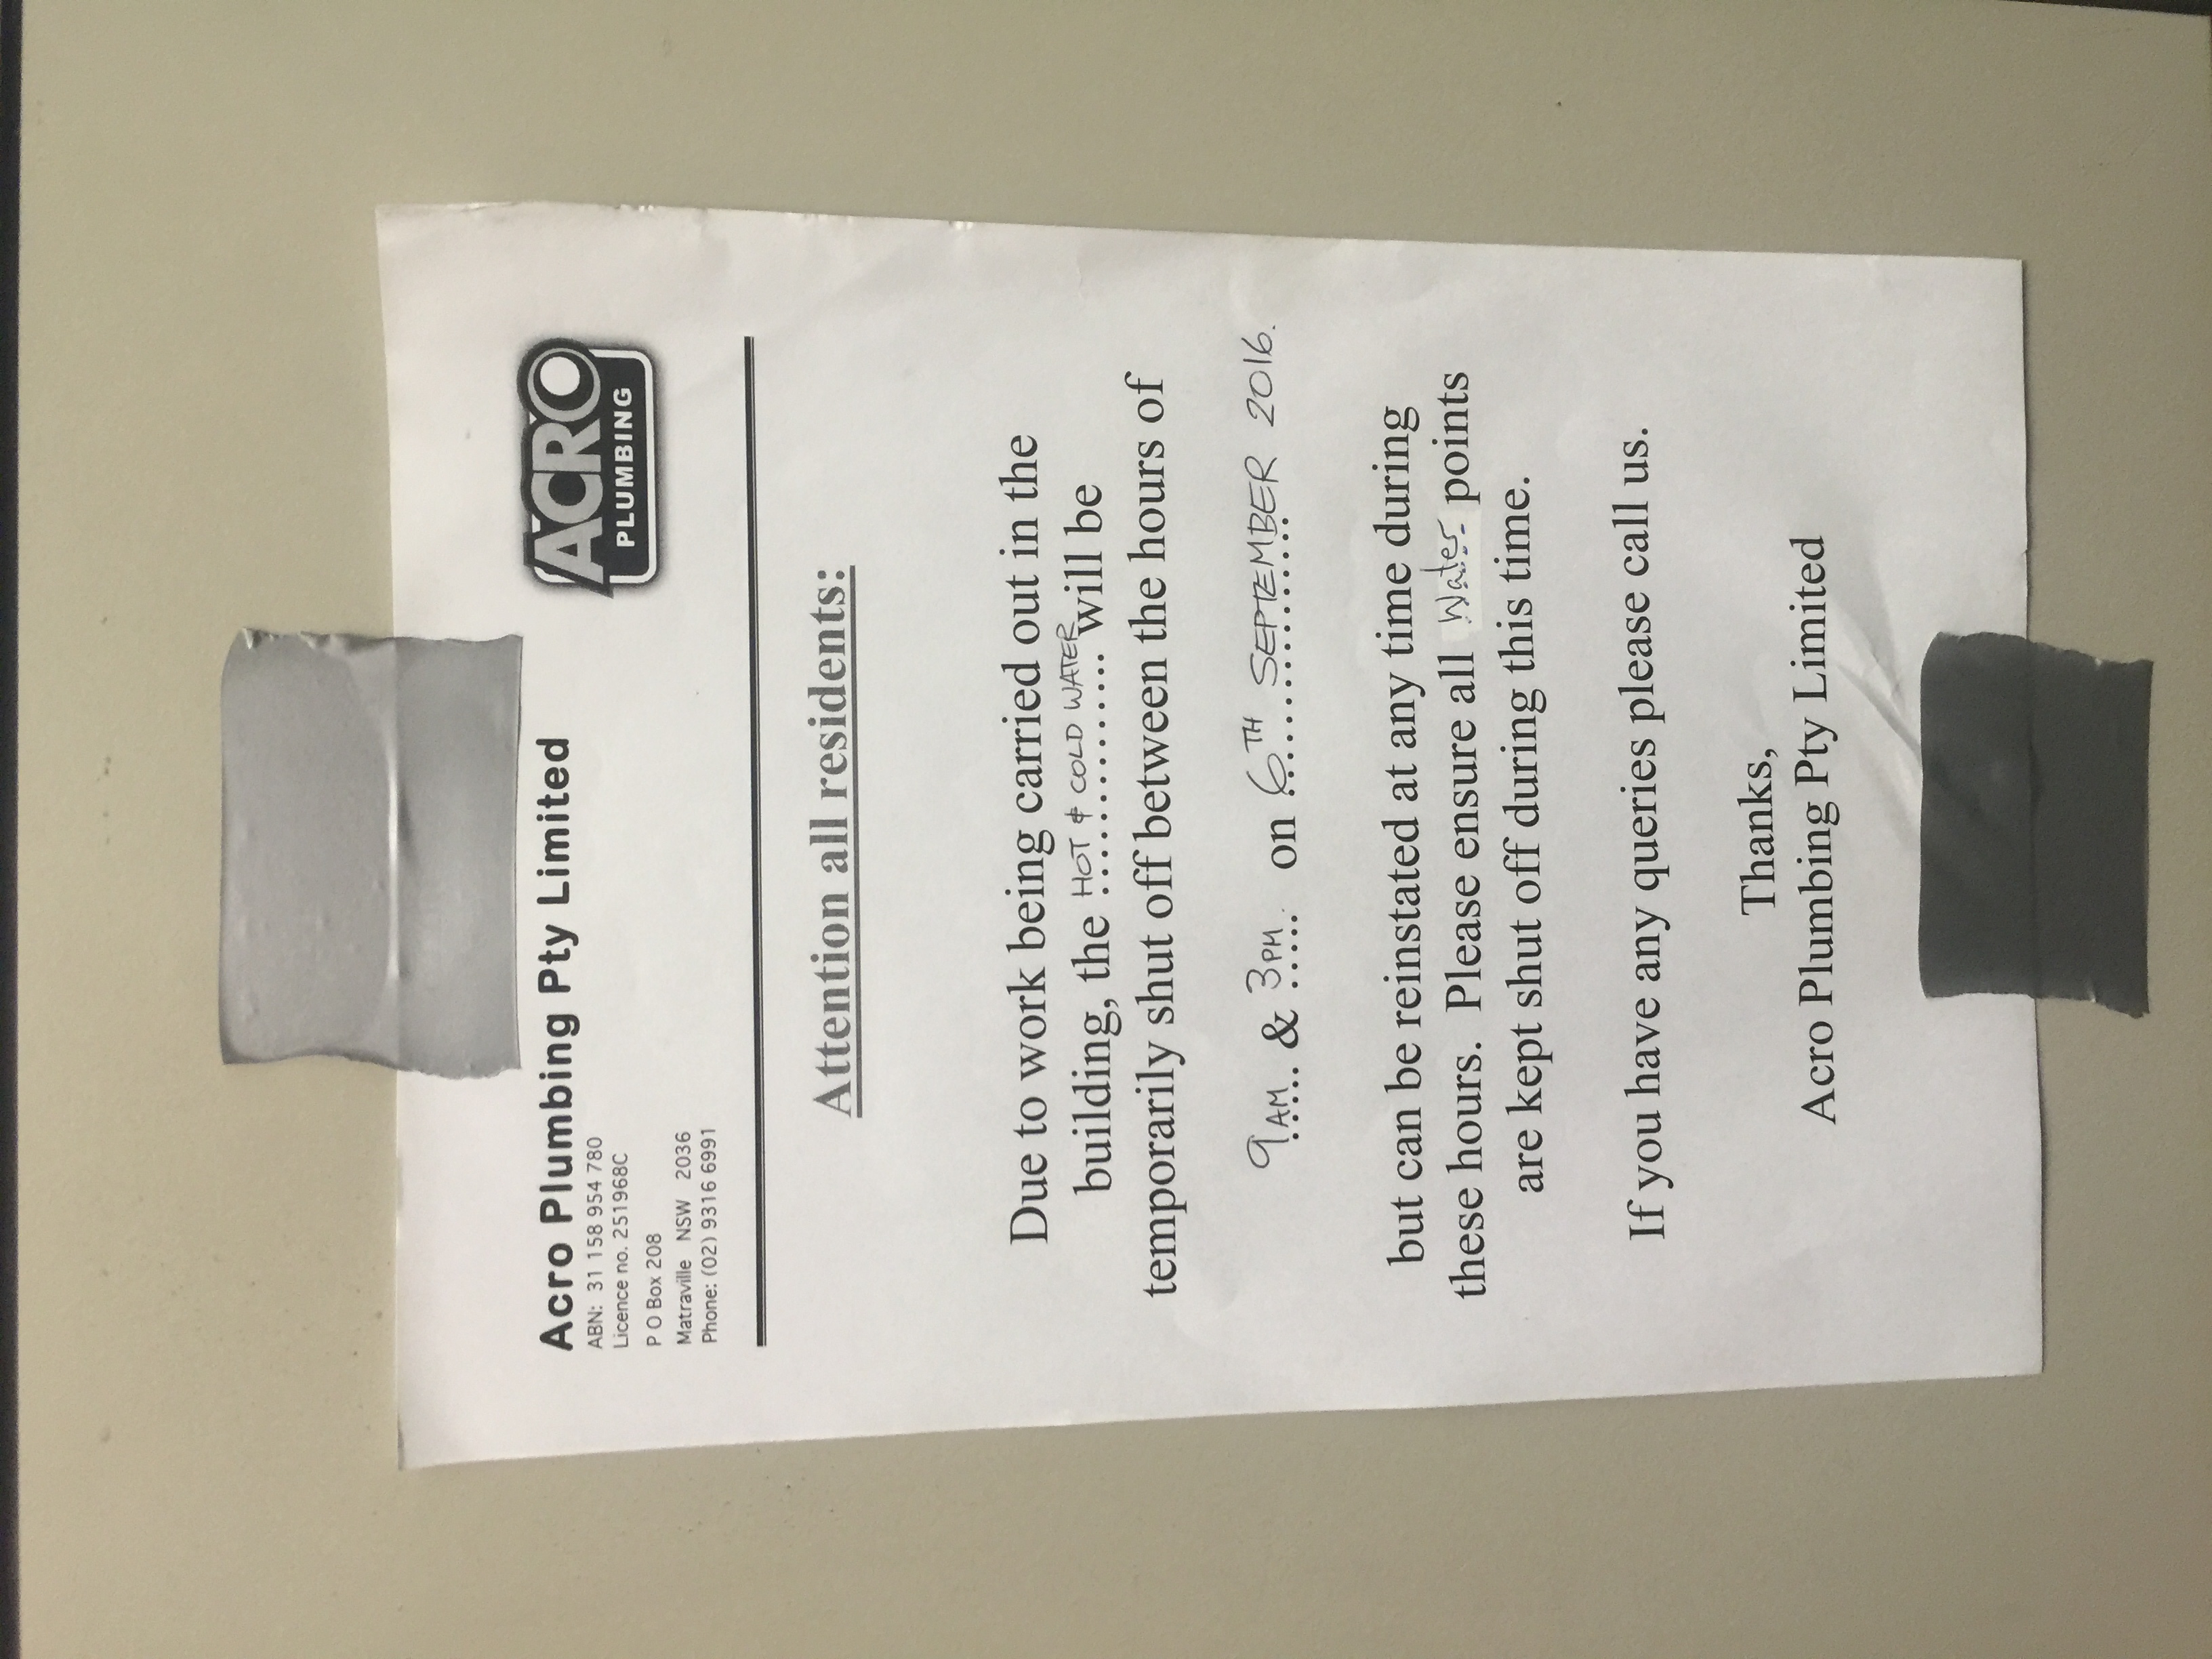 Acro Plumbing Pty Limited
ABN: 31 158 954 780
Licence no. 251968C
P O Box 208
Matraville NSW 2036
Phone: (02) 9316 6991
ACRO
PLUMBING
Attention all residents:
Due to work being carried out in the
building, the HOT & COLD WATER will be
temporarily shut off between the hours of
9AM & 3PM. on 6TH SEPTEMBER 2016.
but can be reinstated at any time during
these hours. Please ensure all Water points
are kept shut off during this time.
If you have any queries please call us.
Thanks,
Acro Plumbing Pty Limited